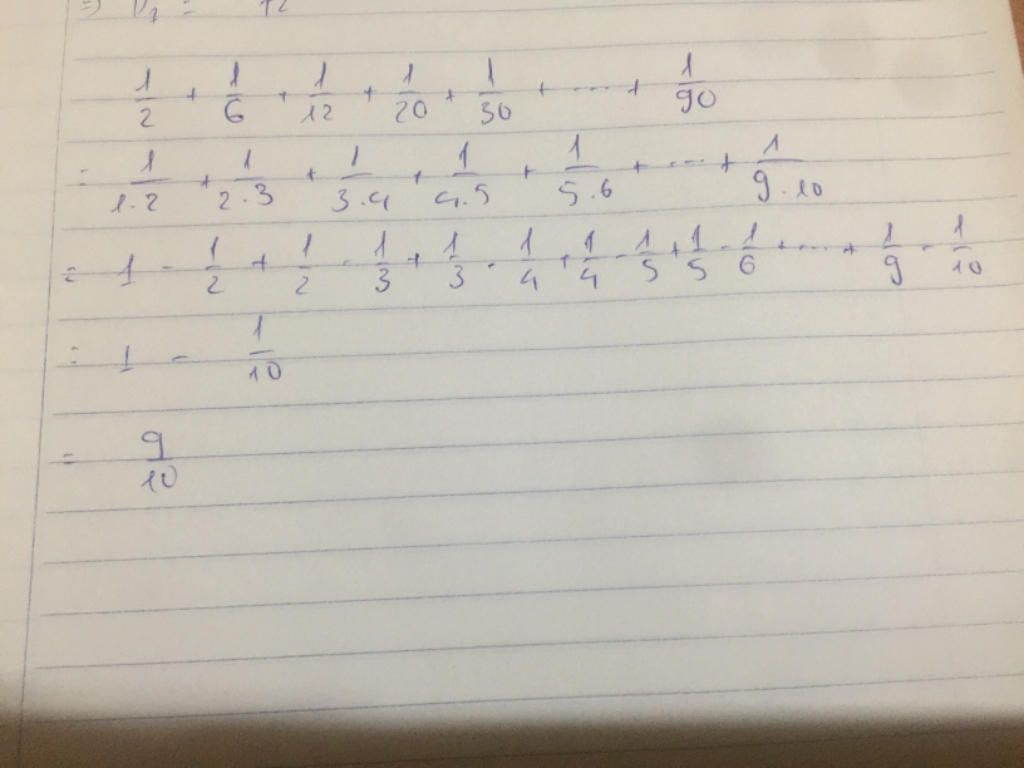 1/2 + 1/6 + 1/12 + 1/20 + 1/30 + .... + 1/90
= 1/1.2 + 1/2.3 + 1/3.4 + 1/4.5 + 1/5.6 + .... + 1/9.10
= 1 - 1/2 + 1/2 - 1/3 + 1/3 - 1/4 + 1/4 - 1/5 + 1/5 - 1/6 + .... + 1/9 - 1/10
= 1 - 1/10
= 9/10